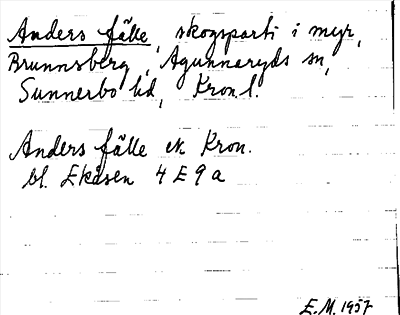 Anders fälle, skogsparti i myr,
Brunnsberg, Agunnaryds sn,
Sunnerbo hd, Kron.l.
Anders fälle ek Kron.
bl. Ekåsen 4 E 9 a
E.M. 1957